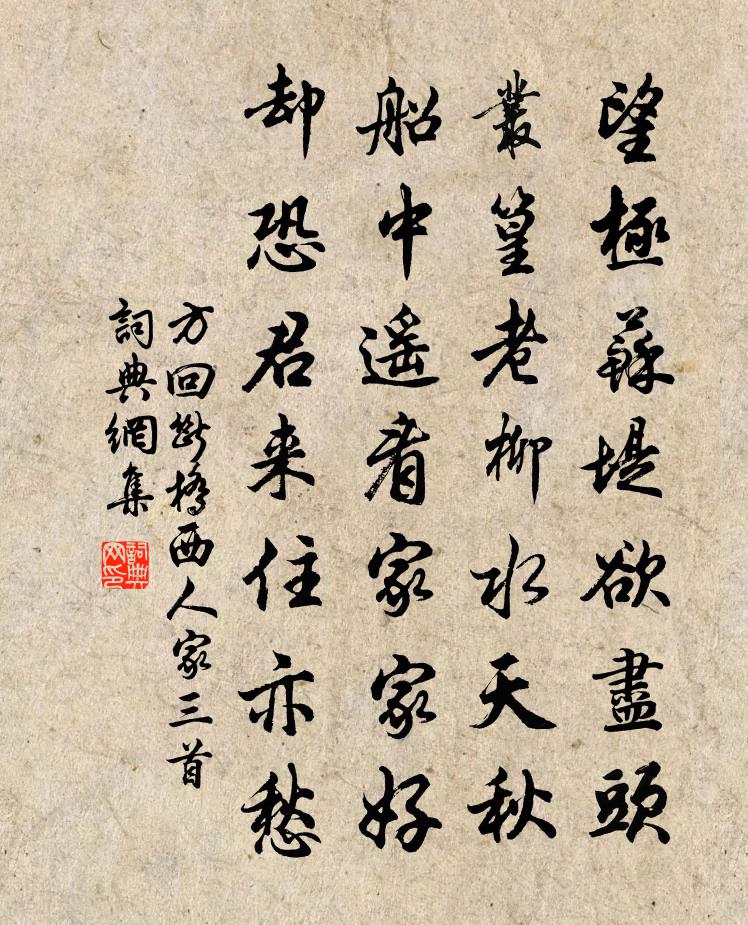 望極蘇堤欲盡頭
叢篁老柳水天秋
船中遥看家家好
却恐君来住亦愁
方回断橋西人家三首
詞典網集
詞典網印